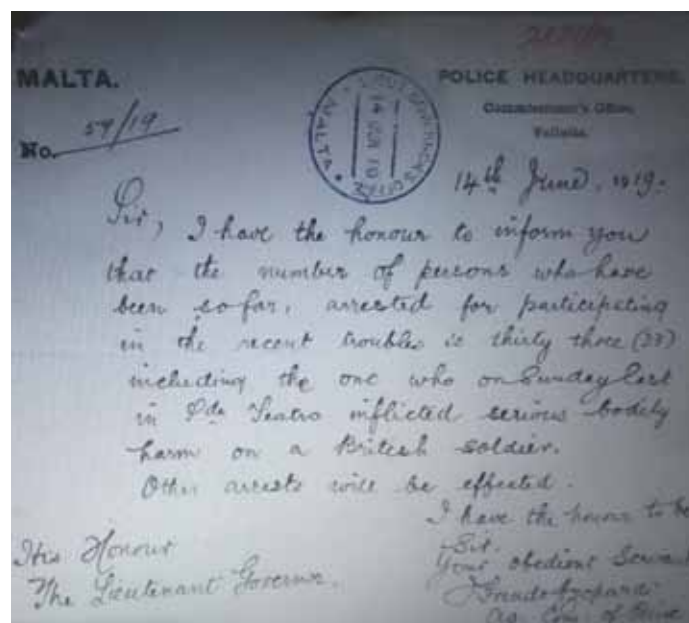 MALTA.
POLICE HEADQUARTERS,
Commissioner's Office,
Valletta.
No. 57/19
LIEUT GOVERNOR'S OFFICE
14 JUN 19
MALTA
14th June, 1919.
Sir, I have the honour to inform you
that the number of persons who have
been so far, arrested for participating
in the recent troubles is thirty three (33)
including the one who on Sunday last
in Sda Teatro inflicted serious bodily
harm on a British soldier.
Other arrests will be effected.
I have the honour to be
Sir.
Your obedient Serva
His Honour
The Lieutenant Governor.
Ag. Com. of Police